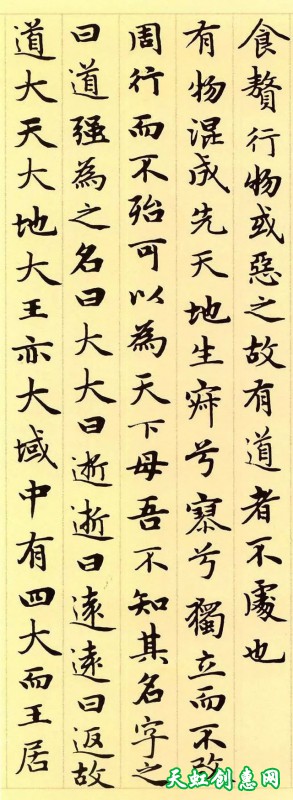 食贅行物或惡之故有道者不處也
有物混成先天地生寂兮寥兮獨立而不改
周行而不殆可以為天下母吾不知其名字之
曰道强為之名曰大大曰逝逝曰遠遠曰返故
道大天大地大王亦大域中有四大而王居
天虹创惠网